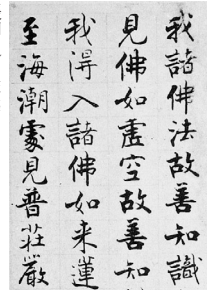 我諸佛法故善知識
見佛如虛空故善知
我得入諸佛如来蓮
至海潮處見普莊嚴